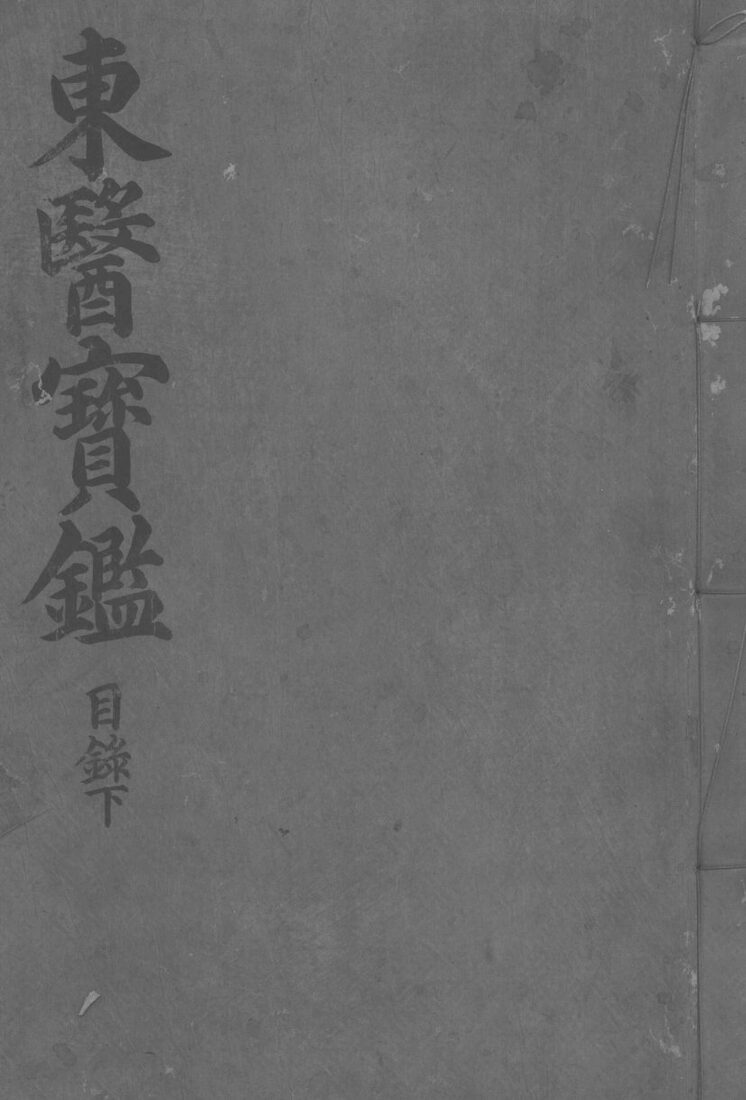 東醫寶鑑
目錄下